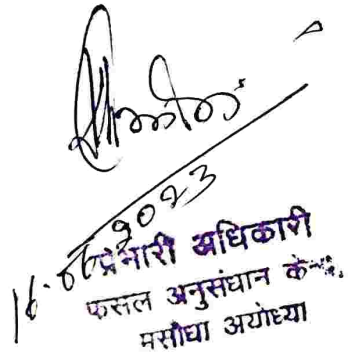 16.06.2023
प्रभारी अधिकारी
फसल अनुसंधान के
मसौधा अयोध्या